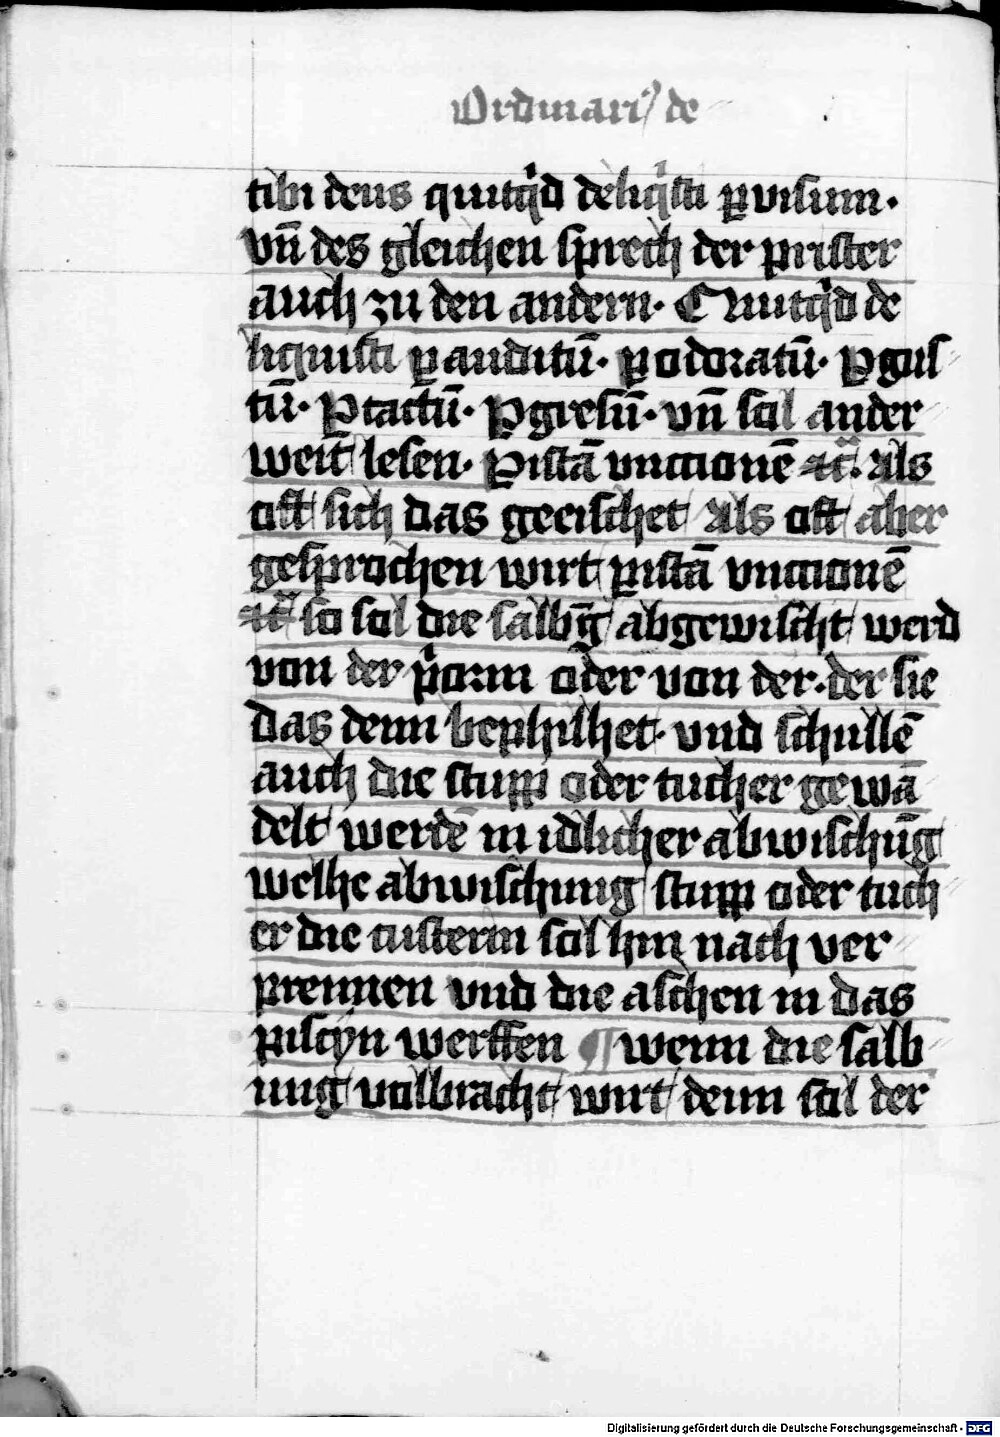 Ordinariꝰ de
tibi deus quitqͥd deliqͥsti ꝑ visum·
vn̄ des gleichen sprech der prister
auch zu den andern· Quitqͥd de
liquisti ꝑ auditū· ꝑ odoratū· ꝑ gus
tū· ꝑ tactū· ꝑ gresū· vn̄ sol ander
weit lesen· ꝑ istā vnctionē ⁊c̄· Als
oft sich das geeischet Als oft aber
gesprochen wirt ꝑ istā vnctionē
⁊c̄ so sol die salbūg abgewischt werd
von der pͥorin oder von der· der sie
das denn bephilhet· vnd schullē
auch die stupp oder tucher gewā
delt werdē in idlicher abwischūg
welhe abwischung stupp oder tuch
er die custerin sol hin nach ver
prennen vnd die aschen in das
piscyn werffen ¶ wenn die salb
ung volbracht wirt denn sol der
Digitalisierung gefördert durch die Deutsche Forschungsgemeinschaft - DFG